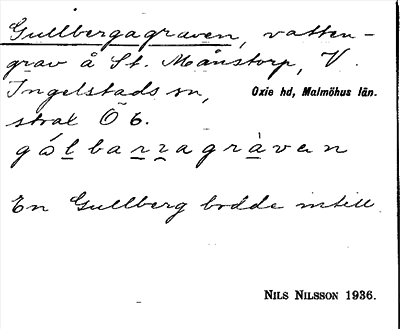 Gullbergagraven, vatten-
grav å St. Månstorp, V.
Ingelstads sn, Oxie hd, Malmöhus län.
strax Ö 6.
gólbarragràven
En Gullberg bodde intill.
NILS NILSSON 1936.